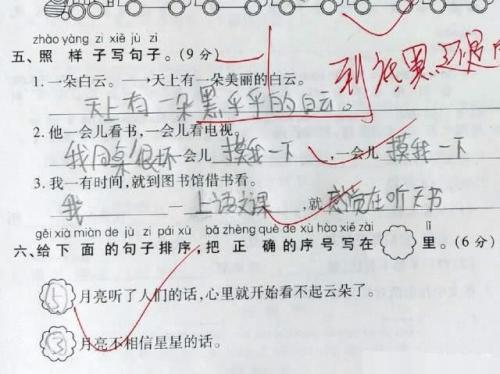 zhào yàng zi xiě jù zi
五、照 样 子写句子。(9 分)
1. 一朵白云。——→天上有一朵美丽的白云。
天上有一朵黑乎乎的白云。
到底黑还是
2. 他一会儿看书,一会儿看电视。
我同桌很坏一会儿摸我一下,一会儿摸我一下
3. 我一有时间,就到图书馆借书看。
我一上语文课,就感觉在听天书
gěi xià miàn de jù zi pái xù bǎ zhèng què de xù hào xiě zài lǐ
六、给 下 面 的 句子 排序,把 正 确 的 序 号 写 在 里。(6 分)
5 月亮听了人们的话,心里就开始看不起云朵了。
3 月亮不相信星星的话。